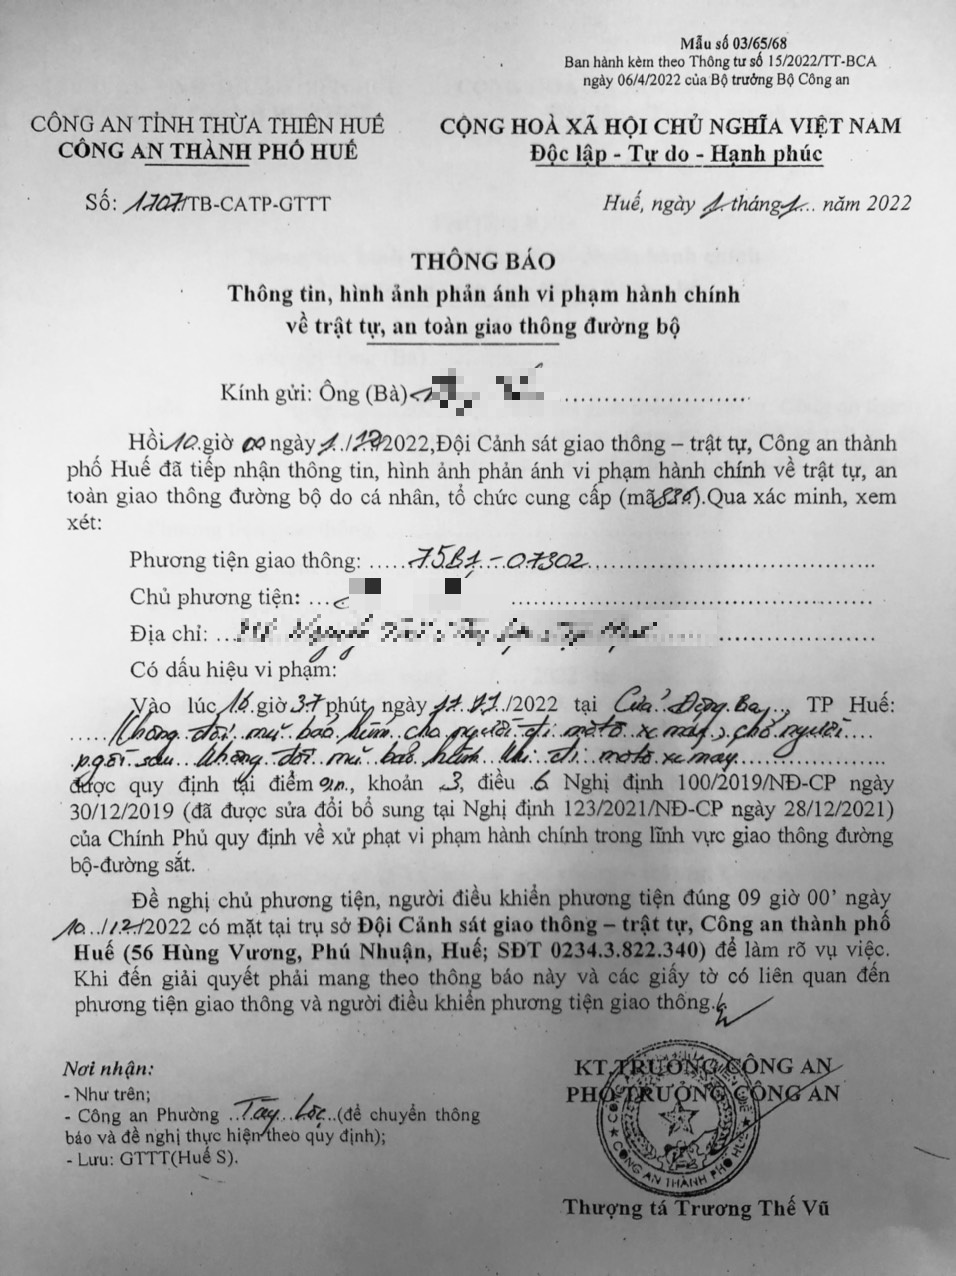 Mẫu số 03/65/68
Ban hành kèm theo Thông tư số 15/2022/TT-BCA
ngày 06/4/2022 của Bộ trưởng Bộ Công an
CÔNG AN TỈNH THỪA THIÊN HUẾ
CÔNG AN THÀNH PHỐ HUẾ
CỘNG HOÀ XÃ HỘI CHỦ NGHĨA VIỆT NAM
Độc lập - Tự do - Hạnh phúc
Số: 1707/TB-CATP-GTTT
Huế, ngày 1 tháng 1... năm 2022
THÔNG BÁO
Thông tin, hình ảnh phản ánh vi phạm hành chính
về trật tự, an toàn giao thông đường bộ
Kính gửi: Ông (Bà)
Hồi 10 giờ 00 ngày 1./12/2022,Đội Cảnh sát giao thông – trật tự, Công an thành
phố Huế đã tiếp nhận thông tin, hình ảnh phản ánh vi phạm hành chính về trật tự, an
toàn giao thông đường bộ do cá nhân, tổ chức cung cấp (mã 836).Qua xác minh, xem
xét:
Phương tiện giao thông: .....75B1-07302
Chủ phương tiện: ...
Địa chỉ: ...
Có dấu hiệu vi phạm:
Vào lúc 16 giờ 37 phút, ngày 17.11./2022 tại Cửa Đông Ba.., TP Huế:
.....Không đội mũ bảo hiểm cho người đi mô tô xe máy, chở người
ngồi sau không đội mũ bảo hiểm khi đi mô tô xe máy
được quy định tại điểm n, khoản 3, điều 6 Nghị định 100/2019/NĐ-CP ngày
30/12/2019 (đã được sửa đổi bổ sung tại Nghị định 123/2021/NĐ-CP ngày 28/12/2021)
của Chính Phủ quy định về xử phạt vi phạm hành chính trong lĩnh vực giao thông đường
bộ-đường sắt.
Đề nghị chủ phương tiện, người điều khiển phương tiện đúng 09 giờ 00' ngày
10../12/2022 có mặt tại trụ sở Đội Cảnh sát giao thông – trật tự, Công an thành phố
Huế (56 Hùng Vương, Phú Nhuận, Huế; SĐT 0234.3.822.340) để làm rõ vụ việc.
Khi đến giải quyết phải mang theo thông báo này và các giấy tờ có liên quan đến
phương tiện giao thông và người điều khiển phương tiện giao thông.
Nơi nhận:
- Như trên;
- Công an Phường ..Tây Lộc..(để chuyển thông
báo và đề nghị thực hiện theo quy định);
- Lưu: GTTT(Huế S).
KT.TRƯỞNG CÔNG AN
PHÓ TRƯỞNG CÔNG AN
CÔNG AN THÀNH PHỐ HUẾ
Thượng tá Trương Thế Vũ